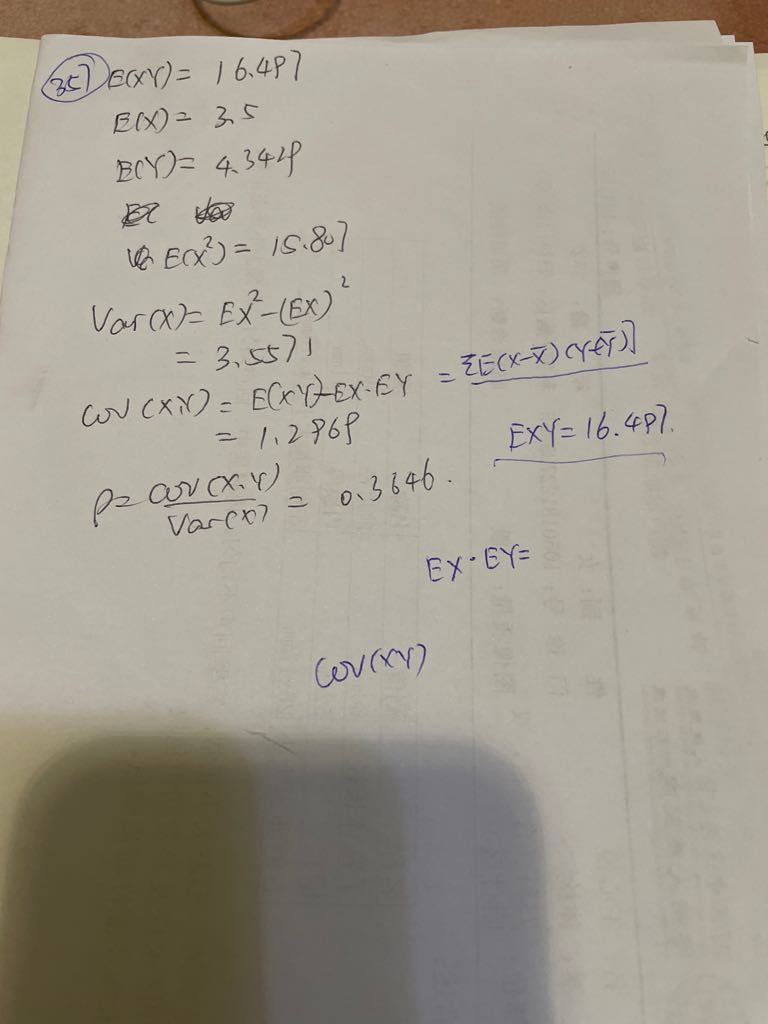 357 E(XY) = 16.497
E(X) = 3.5
E(Y) = 4.3429
E(X²) = 15.807
Var(X) = EX² - (EX)²
= 3.5571
COV(X,Y) = E(XY) - EX·EY = ΣE(X-X̄)(Y-Ȳ)]
= 1.2969
EXY = 16.497.
ρ = COV(X,Y) / Var(X) = 0.3646.
EX·EY =
COV(XY)